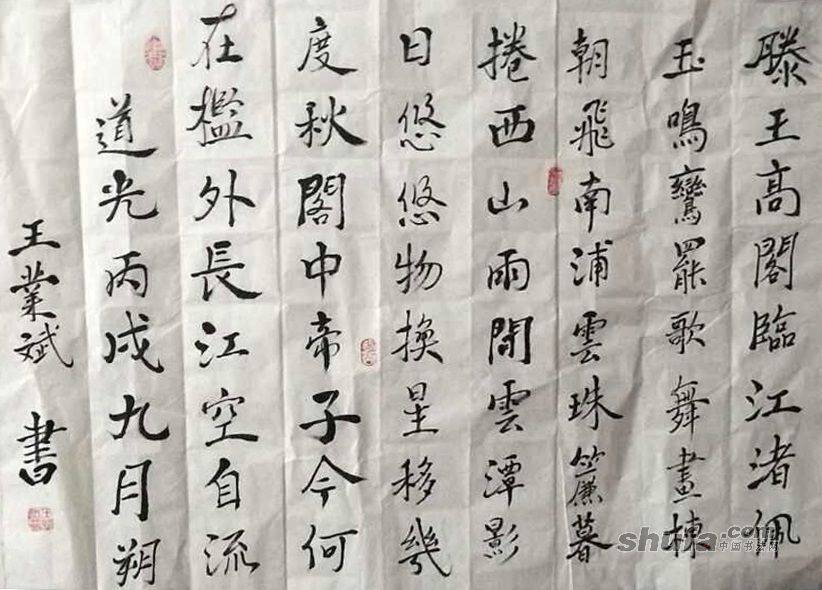 滕王高閣臨江渚佩
玉鳴鸞罷歌舞畫棟
朝飛南浦雲珠簾暮
捲西山雨閒雲潭影
日悠悠物換星移幾
度秋閣中帝子今何
在檻外長江空自流
道光丙戌九月朔
王業斌書
shufa.com
中国书法网